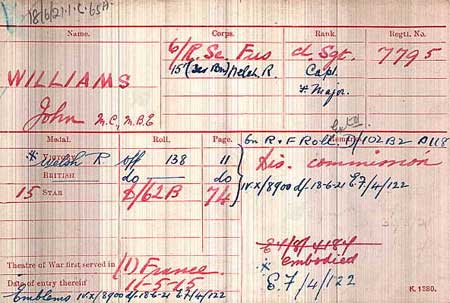 18/6/21.1.C.65A.
Name. Corps. Rank. Regtl. No.
6/R. Sc. Fus C. Sgt. 7795
WILLIAMS 15 (Res Bn) Welsh. R. Capt.
* Major.
John M.C., M.B.E
Medal. Roll. Page. On R+F Roll. D/102B2 A118
* VICTORY Welsh R. off 138 11 Dis. commission
BRITISH do do IVX/8900 d/-18-6-21 E7/4/122
15 STAR C/62B 74
E4/8/4184
embodied
* E.7/4/122
Theatre of War first served in (1) France
Date of entry therein 11-5-15
Emblems IVX/8900 d/-18-6-21 E7/4/122 K 1380.